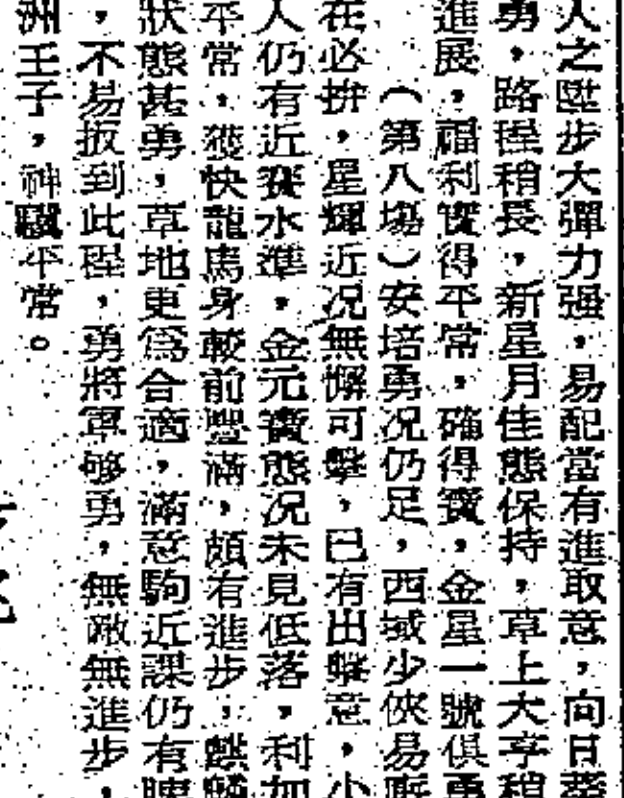 人之陞步大彈力强，易配當有進取意，向日葵
勇，路程稍長，新星月佳態保持，草上大亨稍
進展，福利寶得平常，確得寶，金星一號俱勇
（第八場）安培勇况仍足，西域少俠易
在必拚，星輝近况無懈可擊，已有出擊意，小
人仍有近賽水準，金元寶態况未見低落，利加
平常，獲快龍馬身較前豐滿，頗有進步，麒麟
狀態甚勇，草地更爲合適，滿意駒近課仍有
，不易扳到此程，勇將軍够勇，無敵無進步，
洲王子，神平常。